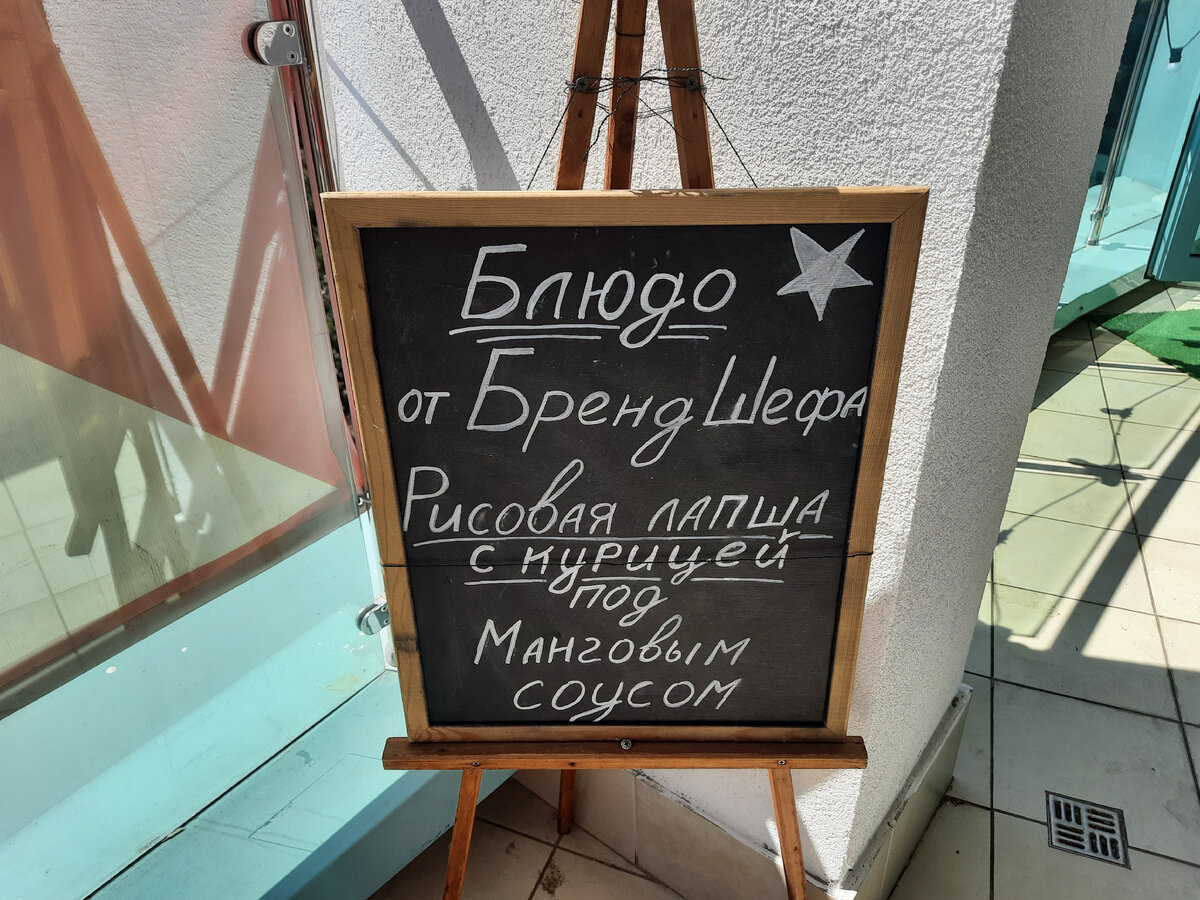 Блюдо
от Бренд Шефа
Рисовая лапша
с курицей
под
Манговым
соусом